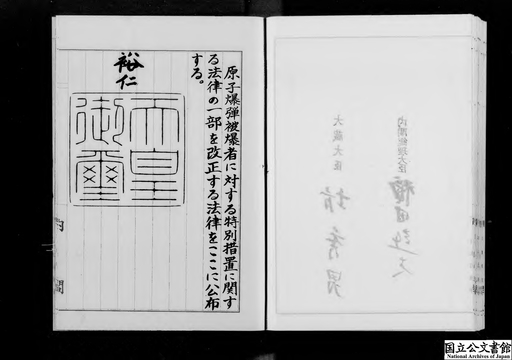 原子爆弾被爆者に対する特別措置に関す
る法律の一部を改正する法律をここに公布
する。
裕仁
天皇
御璽
内閣
内閣総理大臣
大蔵大臣
国立公文書館
National Archives of Japan